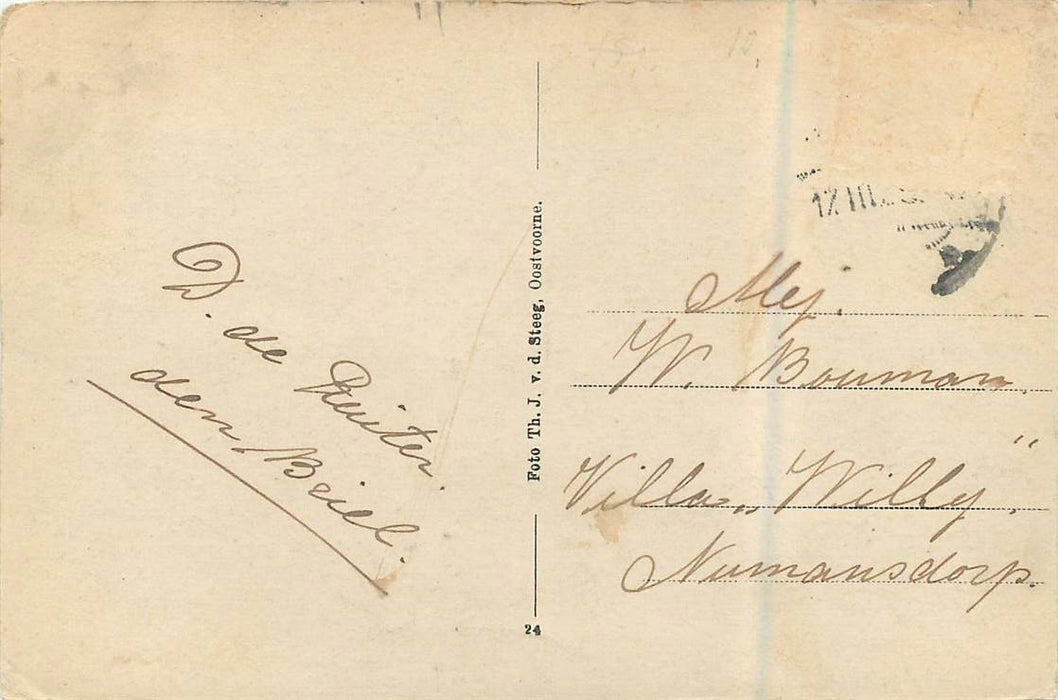 D. de Ruiter.
den Briel.
Foto Th. J. v. d. Steeg, Oostvoorne.
24
Mej.
W. Bouman
Villa „Willy”.
Numansdorp.